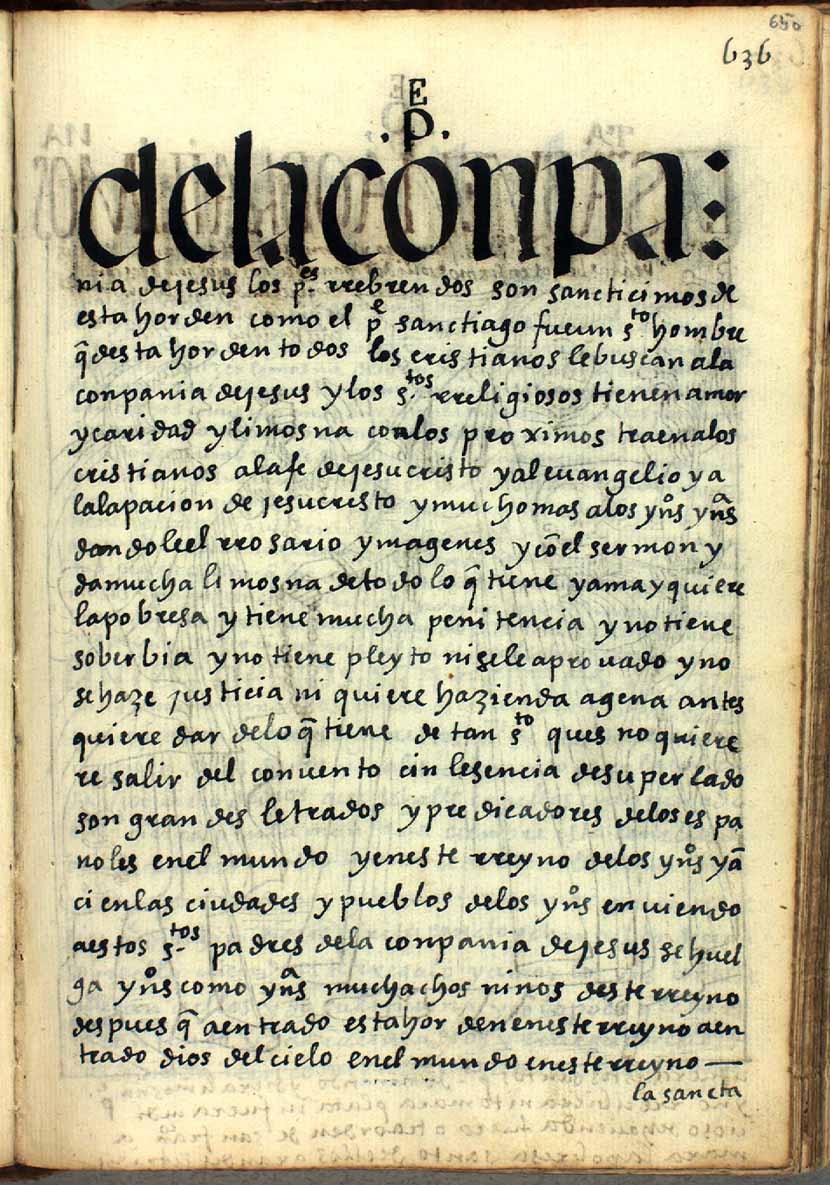 650
636
E
.P.
delaconpa:
nia dejesus los p.es rrebrendos son sancticimos de
esta horden como el pe sanctiago fue un s.to hombre
q̃ desta horden todos los cristianos le buscan ala
conpania dejesus y los s.tos rreligiosos tienen amor
y caridad y limosna con los proximos traen alos
cristianos ala fe de jesucristo y al euangelio y a
la la pacion de jesucristo y mucho mas a los yn.os yn.as
dandole el rrosario ymagenes y cõ el sermon y
da mucha limosna de todo lo q̃ tiene y ama y quiere
la pobresa y tiene mucha penitencia y no tiene
soberbia y no tiene pleyto ni se le a prouado y no
se haze justicia ni quiere hazienda agena antes
quiere dar delo q̃ tiene de tan s.to ques no quiere
re salir del conuento cin lesencia de su perlado
son grandes letrados y predicadores de los espa
noles en el mundo y en este rreyno delos yn.os y ã
ci en las ciudades y pueblos delos yn.os en uiendo
a estos s.tos padres dela conpania dejesus se huel
ga yn.os como yn.as muchachos ninos deste rreyno
despues q̃ a entrado esta horden en este rreyno a en
trado dios del cielo en el mundo en este rreyno —
la sancta